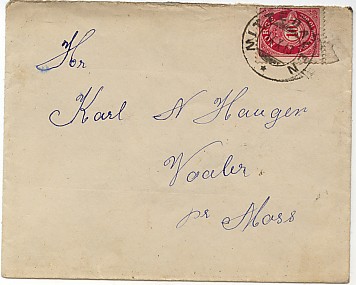 Hr
Karl N Haugen
Vaaler
pr Moss
10